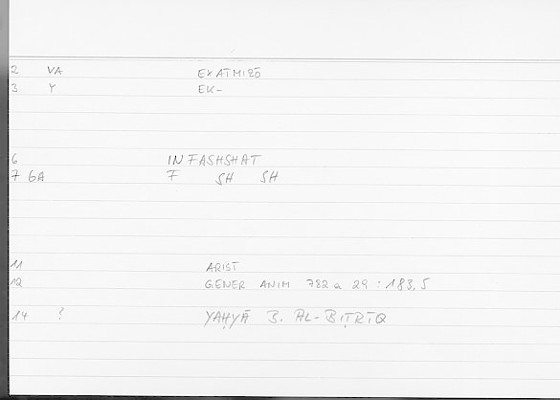 2 VA EKATMIZŌ
3 Y EK-
6 INFASHSHAT
7 GA F SH SH
11 ARIST
12 GENER ANIM 782a 29 : 183.5
14 ? YAḤYĀ B. AL-BIṬRĪQ